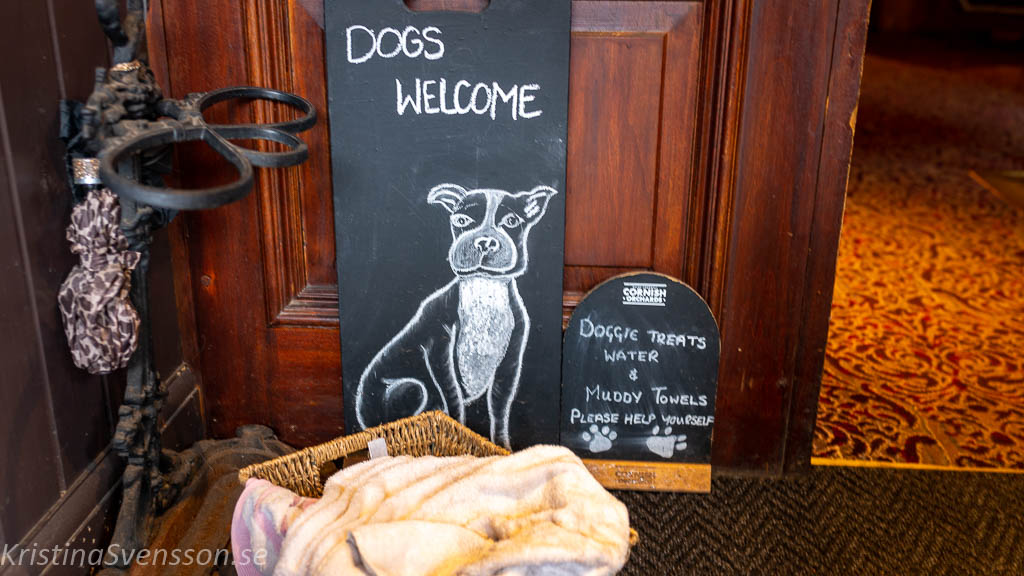 DOGS
WELCOME
CORNISH
ORCHARDS
DOGGIE TREATS
WATER
&
MUDDY TOWELS
PLEASE HELP YOURSELF
CORNISH
KristinaSvensson.se